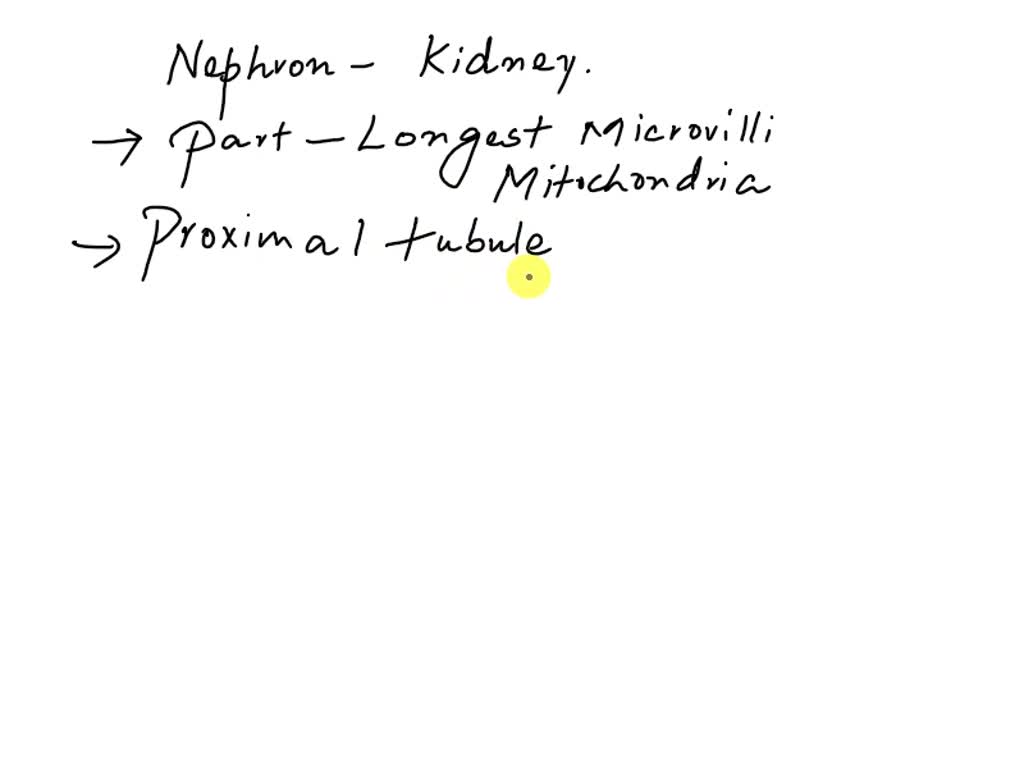 Nephron - Kidney.
→ Part - Longest Microvilli
Mitochondria
→ Proximal tubule